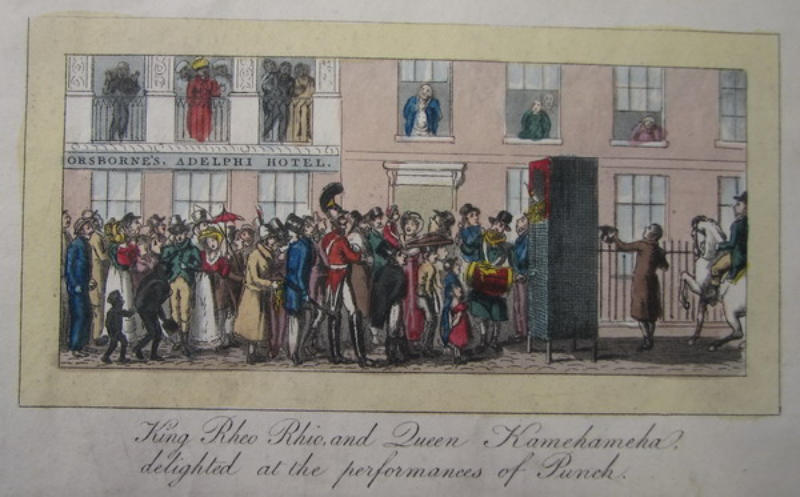 ORSBORNE'S, ADELPHI HOTEL.
King Rheo Rhio, and Queen Kamehameha,
delighted at the performances of Punch.